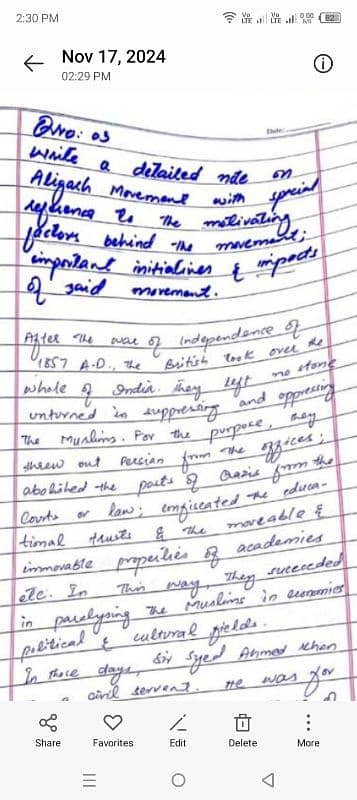 2:30 PM
Vo LTE Vo LTE 0.00 K/s 82
Nov 17, 2024
02:29 PM
Date:
Qno: 03
Write a detailed note on
Aligarh Movement with special
reference to the motivating
factors behind the movement;
important initiatives & impacts
of said movement.
After the war of Independence of
1857 A.D., the British took over the
whole of India. They left no stone
unturned in suppressing and oppressing
the Muslims. For the purpose, they
threw out Persian from the offices;
abolished the posts of Qazis from the
Courts or law; confiscated the educa-
tional trusts & the moveable &
immovable properties of academies
etc. In this way, they succeeded
in paralysing the Muslims in economics
political & cultural fields.
In those days, Sir Syed Ahmed Khan
civil servant. He was for
Share
Favorites
Edit
Delete
More